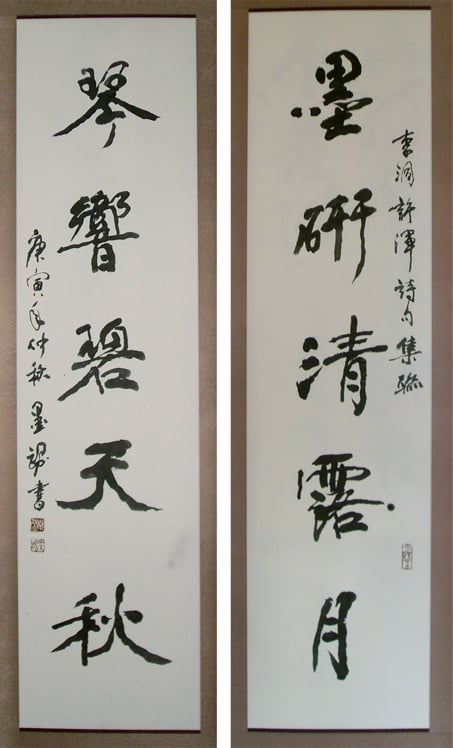 李洞許渾詩句集聯
墨研清露月
琴響碧天秋
庚寅年仲秋墨 書